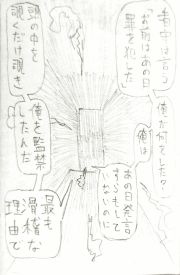 俺が何をした?
者中は言う
「お前はあの日
罪を犯した」
俺は
あの日発言
すらもして
いないのに
頭の中を
覗くだけ覗き
俺を監禁
したんだ
最も
滑稽な
理由で